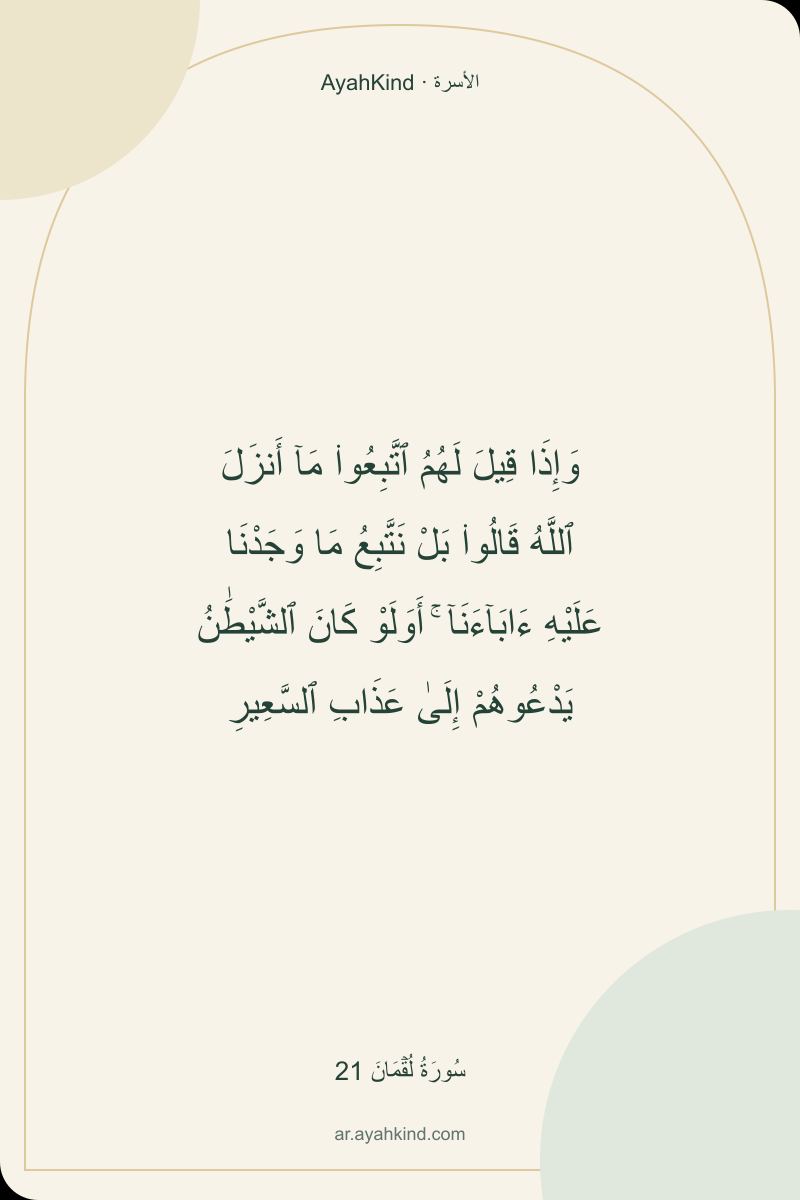 AyahKind · الأسرة
وَإِذَا قِيلَ لَهُمُ ٱتَّبِعُوا۟ مَآ أَنزَلَ
ٱللَّهُ قَالُوا۟ بَلْ نَتَّبِعُ مَا وَجَدْنَا
عَلَيْهِ ءَابَآءَنَآ ۚ أَوَلَوْ كَانَ ٱلشَّيْطَٰنُ
يَدْعُوهُمْ إِلَىٰ عَذَابِ ٱلسَّعِيرِ
سُورَةُ لُقۡمَانَ 21
ar.ayahkind.com